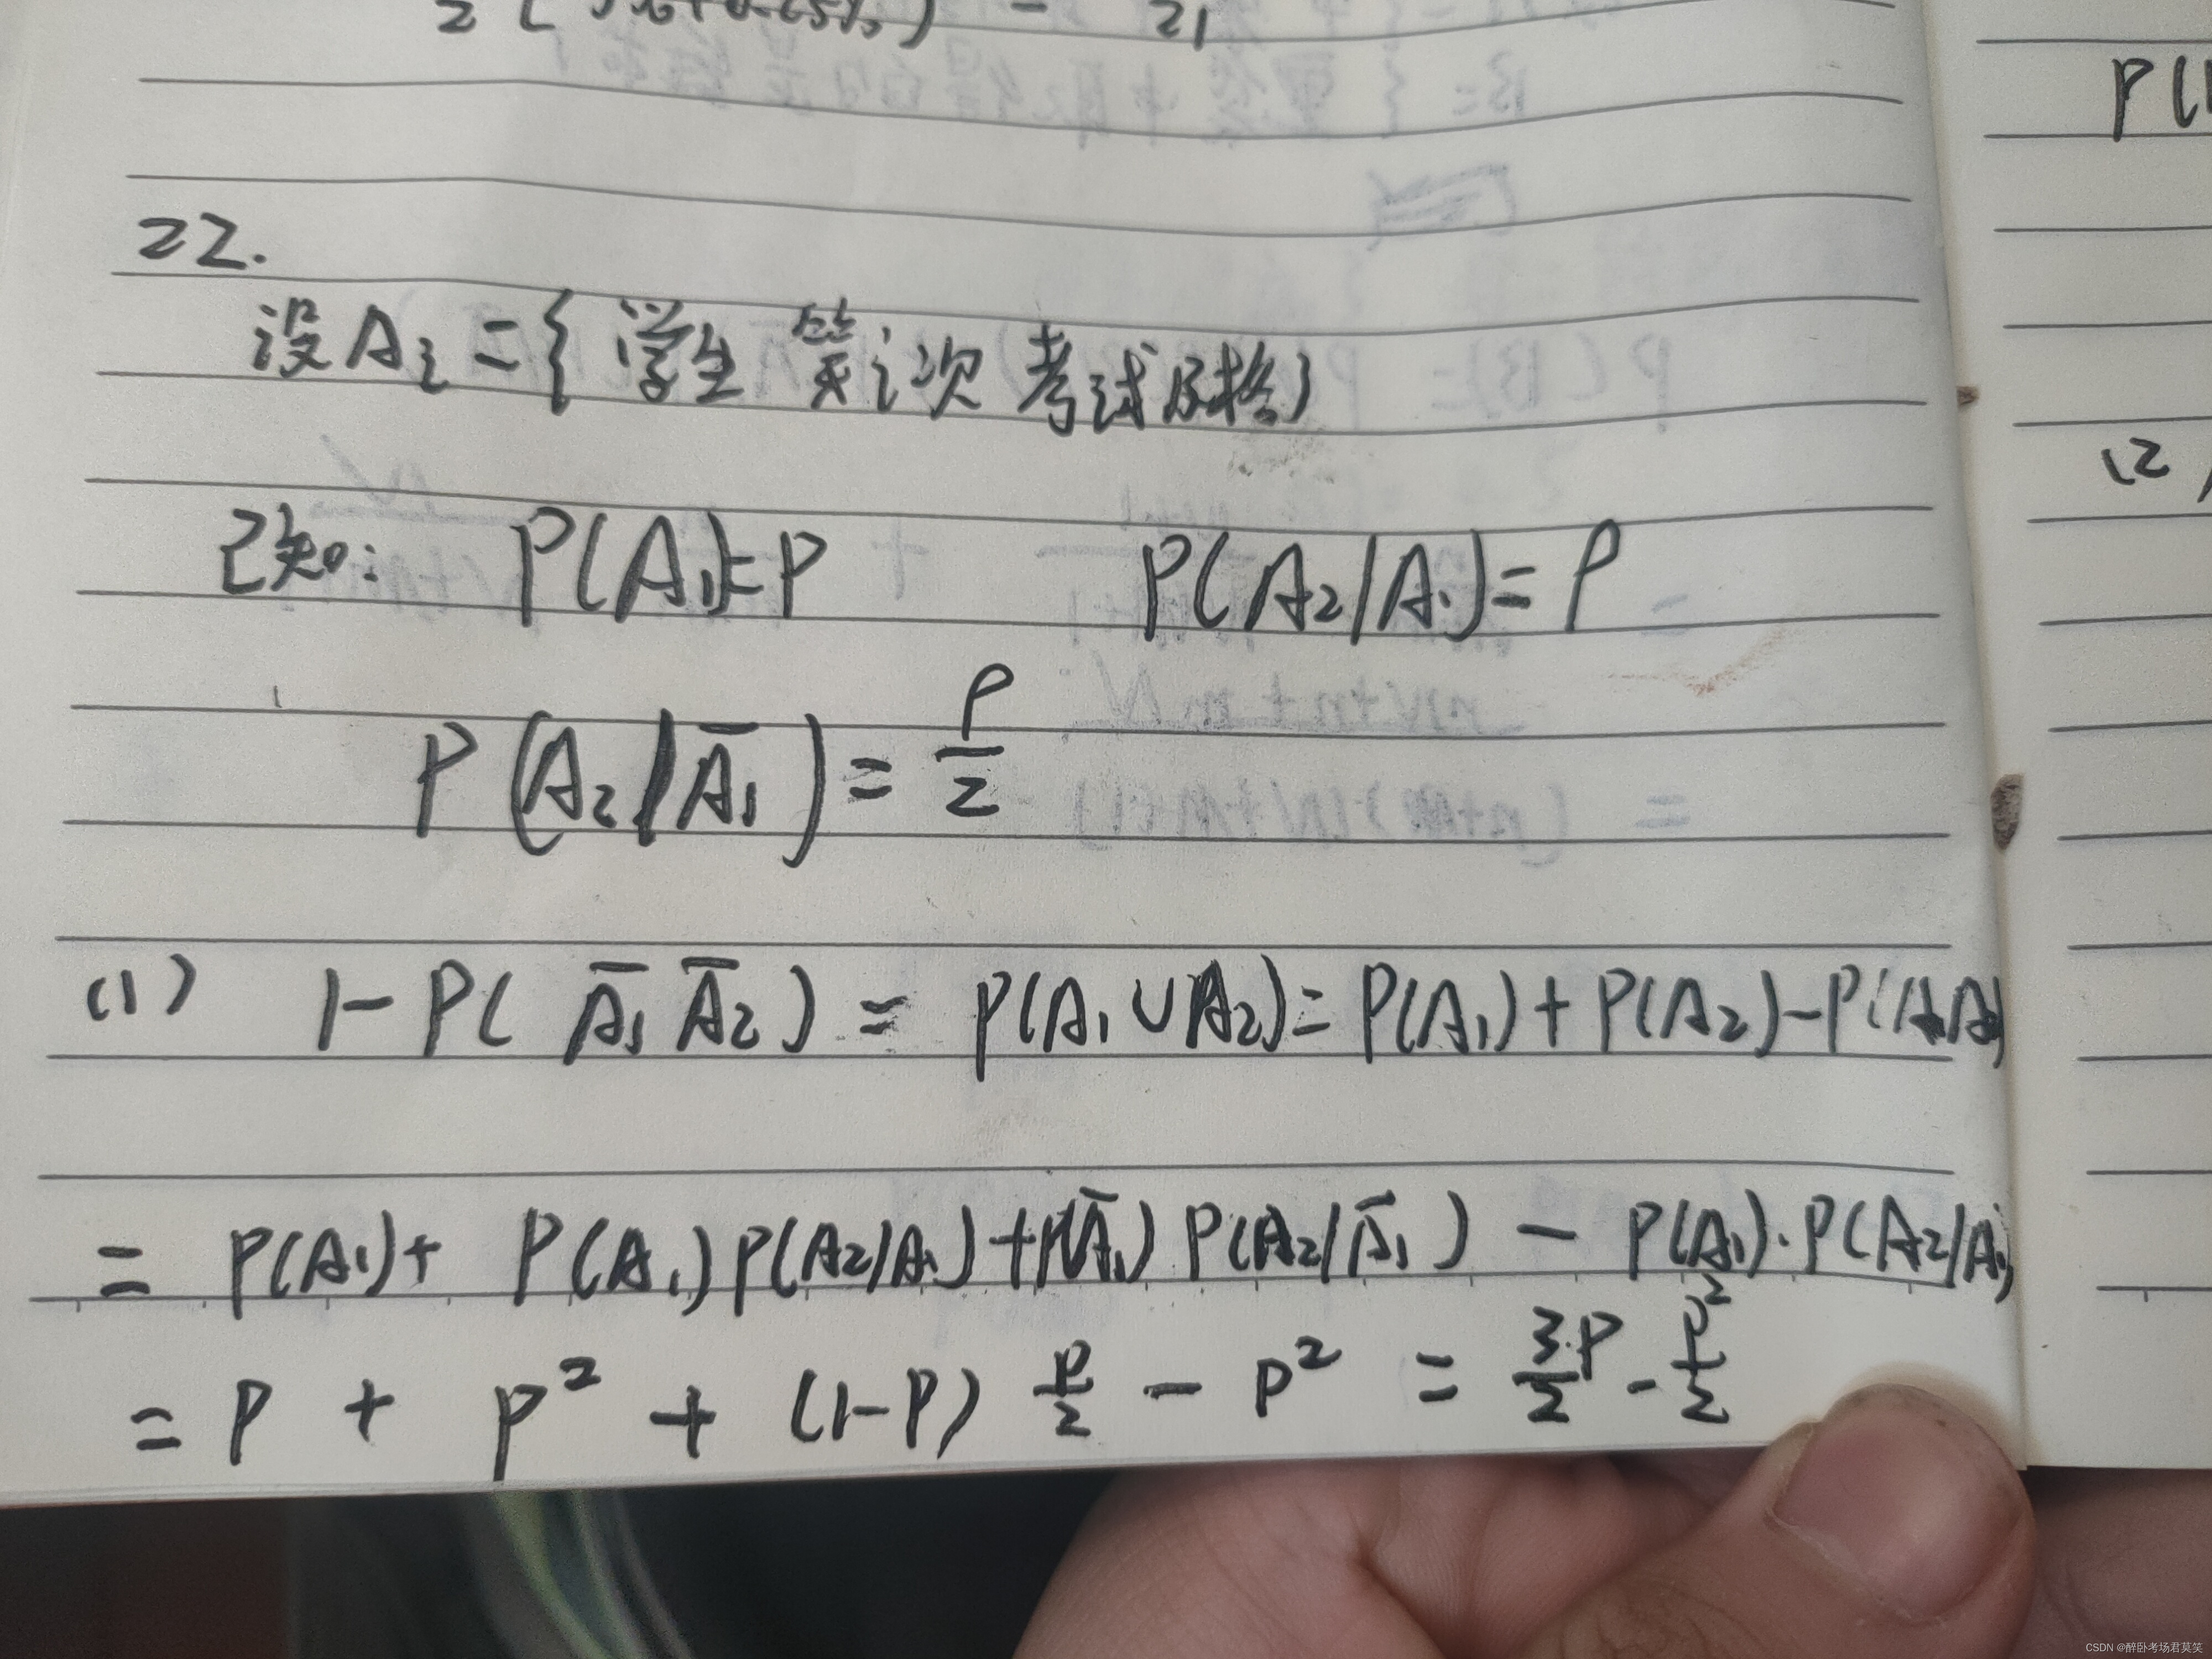 22.
设 Ai = { 学生第i次考试及格}
已知: P(A₁)=P P(A₂/A₁)=P
P(A₂/A̅₁) = P/2
(1) 1-P( A̅₁ A̅₂ ) = P(A₁∪A₂) = P(A₁)+P(A₂)-P(A₁A₂)
= P(A₁)+ P(A₁)P(A₂/A₁)+P(A̅₁) P(A₂/A̅₁) - P(A₁)·P(A₂/A₁)
= P + P² + (1-P) P/2 - P² = 3/2 P - P²/2
P(
(2)
CSDN @醉卧考场君莫笑